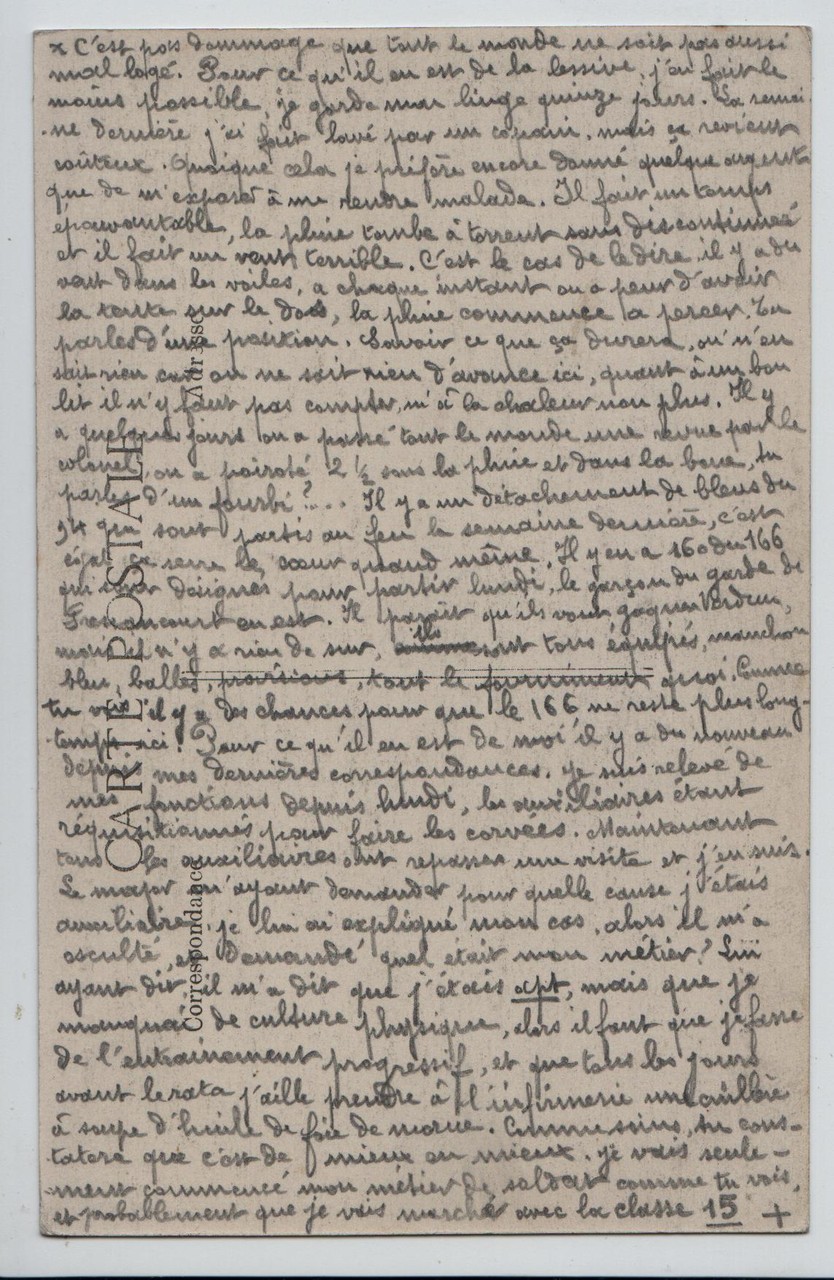 x C'est pas dommage que tout le monde ne soit pas aussi
mal logé. Pour ce qu'il en est de la lessive, j'en fait le
moins possible, je garde mon linge quinze jours. La semai
ne dernière j'ai fait lavé par un copain, mais ça revient
coûteux. Quoique cela je préfère encore donné quelque argent
que de m'exposer à me rendre malade. Il fait un temps
épouvantable, la pluie tombe à torrent sans discontinué
et il fait un vent terrible. C'est le cas de le dire il y a du
vent dans les voiles, a chaque instant on a peur d'avoir
la toile sur le dos, la pluie commence a percer. Tu
parles d'une position. Savoir ce que ça durera, on n'en
sait rien car on ne sait rien d'avance ici, quant à un bon
lit il n'y faut pas compter, ni à la chaleur non plus. Il y
a quelques jours on a passé tout le monde une revue par le
colonel, on a poiroté 2 ½ sous la pluie et dans la boue, tu
parles d'un fourbi ?... Il y a un détachement de bleus du
94 qui sont partis au feu la semaine dernière, c'est
égal ça serre le cœur quand même. Il y en a 160 du 166
qui sont désignés pour partir lundi, le garçon du garde de
en est. Il paraît qu'ils vont gagner Verdun,
mais il n'y a rien de sur, ils sont tous équipés, manchon
bleu, balles, provisions, tout le fourniment quoi. Comme
tu vois il y a des chances pour que le 166 ne reste plus long-
temps ici. Pour ce qu'il en est de moi il y a du nouveau
depuis mes dernières correspondances. Je suis relevé de
mes fonctions depuis lundi, les auxiliaires étant
réquisitionnés pour faire les corvées. Maintenant
tous les auxiliaires ont repasser une visite et j'en suis.
Le major m'ayant demander pour quelle cause j'étais
auxiliaire, je lui ai expliqué mon cas, alors il m'a
osculté, et demandé quel était mon métier? Lui
ayant dit, il m'a dit que j'étais apt, mais que je
manquai de culture physique, alors il faut que je fasse
de l'entrainement progressif, et que tous les jours
avant le rata j'aille prendre à l'infirmerie une cuillère
à soupe d'huile de foie de morue. Comme soins, tu cons-
tatera que c'est de mieux en mieux. Je vais seule-
ment commencé mon métier de soldat comme tu vois,
et probablement que je vais marché avec la classe 15 +
CARTE POSTALE
Correspondance
Adresse